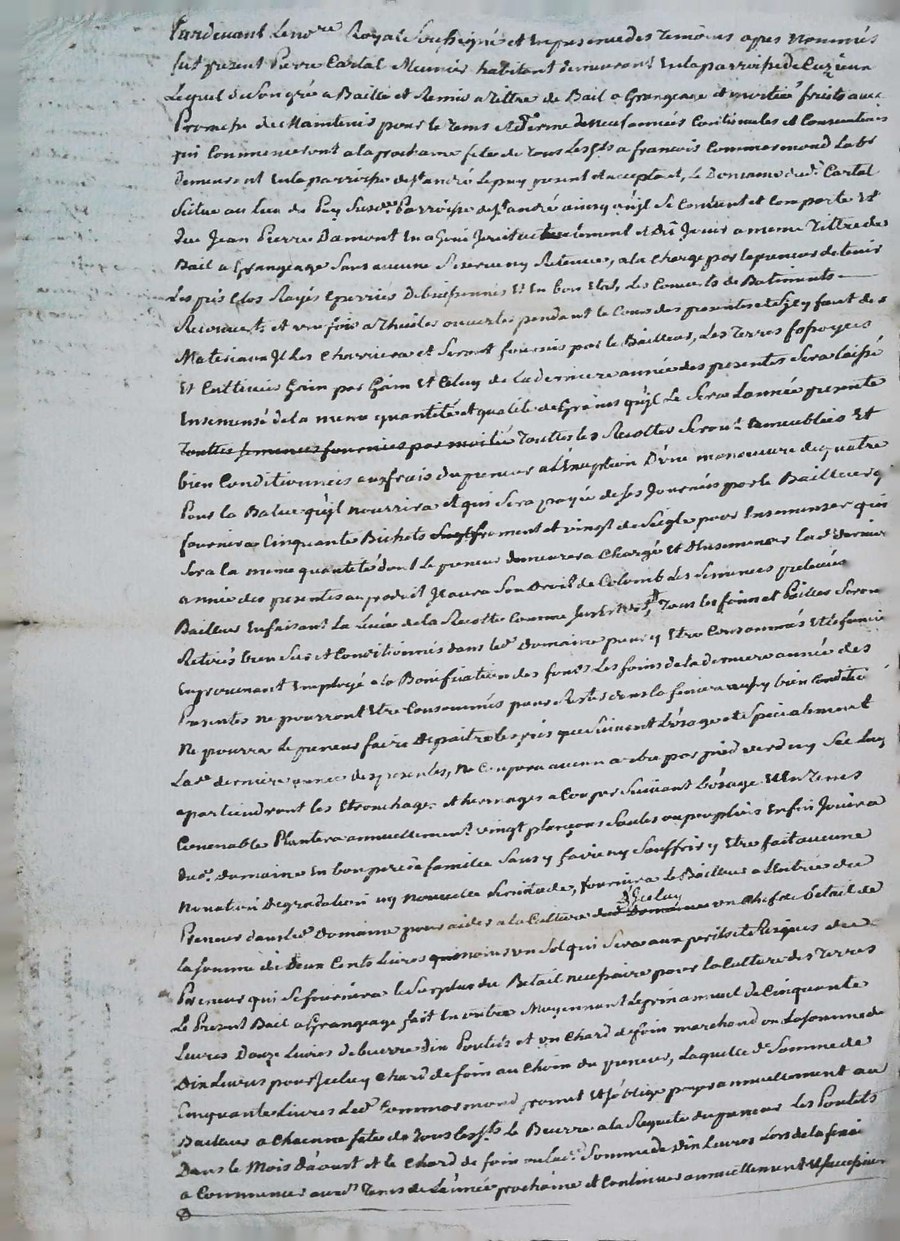 Pardevant Le no.re Royal Soussigné et en presence des Temoins apres Nommés
fut present Pierre Cartal Meunier habitant demeurant En la parroisse de Cuzieu
Lequel de Son gré a Baillé et Remis a Tiltre de Bail a Grangeage et moitié fruits avec
Promesse de Maintenir pour le Tems et Terme de neuf années Continuelles et Consecutives
qui Commenceront a la prochaine fete de Tous Les Sts a francois Commarmond Lab.r
demeurant En la parroisse de St andré Le puy present et acceptant, Le Domaine dud. Cartal
Situé au Lieu du Puy Susd. Parroisse de St andré ainsy qu'il Se Contient et Comporte Et
que Jean Pierre Damont En a Geni Jouit actuellement et Dû Jouir a meme Tiltre de
Bail a Grangeage Sans aucune Reserve ny Retenue, a la Charge par le preneur de tenir
Les prés Clos Rayés Epurries Debuissonnés Et En bon Etat, Les Couverts de Batiments
Recouverts et une fois a Thuiles ouvertes pendant le Cours des presentes et S'il y faut des
Materiaux Il Les Charriera et Seront fournis par le Bailleur, Les Terres fossoyées
Et Cultivées Gain par Gain Et Celuy de La derniere année des presentes Sera laissé
Ensemensé de la meme quantité et qualité de Grains qu'il Le Sera L'année presente
Toutes Semences fournies par moitié Toutes les Recoltes Seront Emmeublées Et
bien Conditionnées aux frais du preneur a L'Exception D'une manoeuvre de quatre
Pour La Batue qu'il nourrira et qui Sera payée de Ses Journées par le Bailleur q
fournira Cinquante Bichets froment et vingt de Seigle pour Ensemenser qui
Sera la meme quantité dont Le preneur demeurera Chargé Et d'Ensemenser la d. derniere
année des presentes au produit Il aura Son Droit de Colomb Les Semences prelevées
Bailleur En faisant La Levée de la Recolte Comme Tous les foins et Pailles Seront
Retirés bien Secs et Conditionnés dans led. Domaine pour y Etre Consommés Et le fumier
En provenant Employé a la Bonification des fonds Les foins de la derniere année des
Presentes ne pourront Etre Consommés pour Restés dans la feniere aussy bien Conditio
Ne pourra Le preneur faire Depaitre les prés que Suivant L'usage et Specialement
La d. derniere année des presentes, Ne Coupera aucun arbre par pied verd ny Sec Luy
apartiendront les Etronchages et hermages a Couper Suivant L'usage Et En Tems
Convenable Plantera annuellement vingt plançons Saules ou peupliers Enfin Jouira
dud. Domaine En bon pere de famille Sans y faire ny Souffrir y Etre fait aucune
Novation Degradation ny nouvelle Servitude, fournira le Bailleur a L'Entrée du
D'Iceluy
Preneur dans led. Domaine pour aider a la Culture dud. Domaine un Chef de betail de
la Somme de Deux Cents Livres moins un Sol qui Sera aux perils et Risques du
Preneur qui Se fournira le Surplus du Betail necessaire pour la Culture des Terres
Le Present Bail a Grangeage fait En outre Moyennant Le prix annuel de Cinquante
Livres Douze Livres de beurre Dix Poulets et un Chard de foin marchand ou La Somme de
Dix Livres pour Iceluy Chard de foin au Choix du preneur, Laquelle d. Somme de
Cinquante Livres Led. Commarmond promet Et S'oblige payer annuellement au
Bailleur a Chacune fete de Tous Les Sts Le Beurre a la Requete du preneur Les Poulets
Dans le Mois D'aoust et le Chard de foin ou lad. Somme de Dix Livres Lors de la fenai
a Commencer aud. Tems de L'année prochaine et Continuer annuellement Et Successive